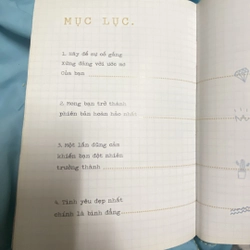 MỤC LỤC.
1. Hãy để sự cố gắng
Xứng đáng với ước mơ
Của bạn
2. Mong bạn trở thành
phiên bản hoàn hảo nhất
3. Một lần đúng của
khiến bạn đột nhiên
trưởng thành
4. Tình yêu đẹp nhất
chính là bình đẳng